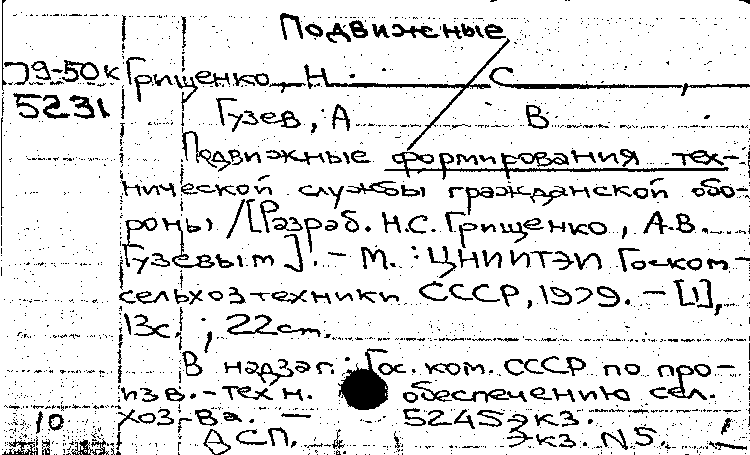 Подвижные
Д9-50к Грищенко, Н. С,
5231 Гузев, А В.
Подвижные формирования тех-
нической службы гражданской обо-
роны /[Разраб. Н.С. Грищенко, А.В.
Гузевым]. - М. : ЦНИИТЭИ Госком-
сельхозтехники СССР, 1979. - [1],
13с. ; 22см.
В надзаг.: Гос. ком. СССР по про-
изв.-техн. обеспечению сел.
хоз-ва. — 5245экз.
10 ДСП. Экз. N5.